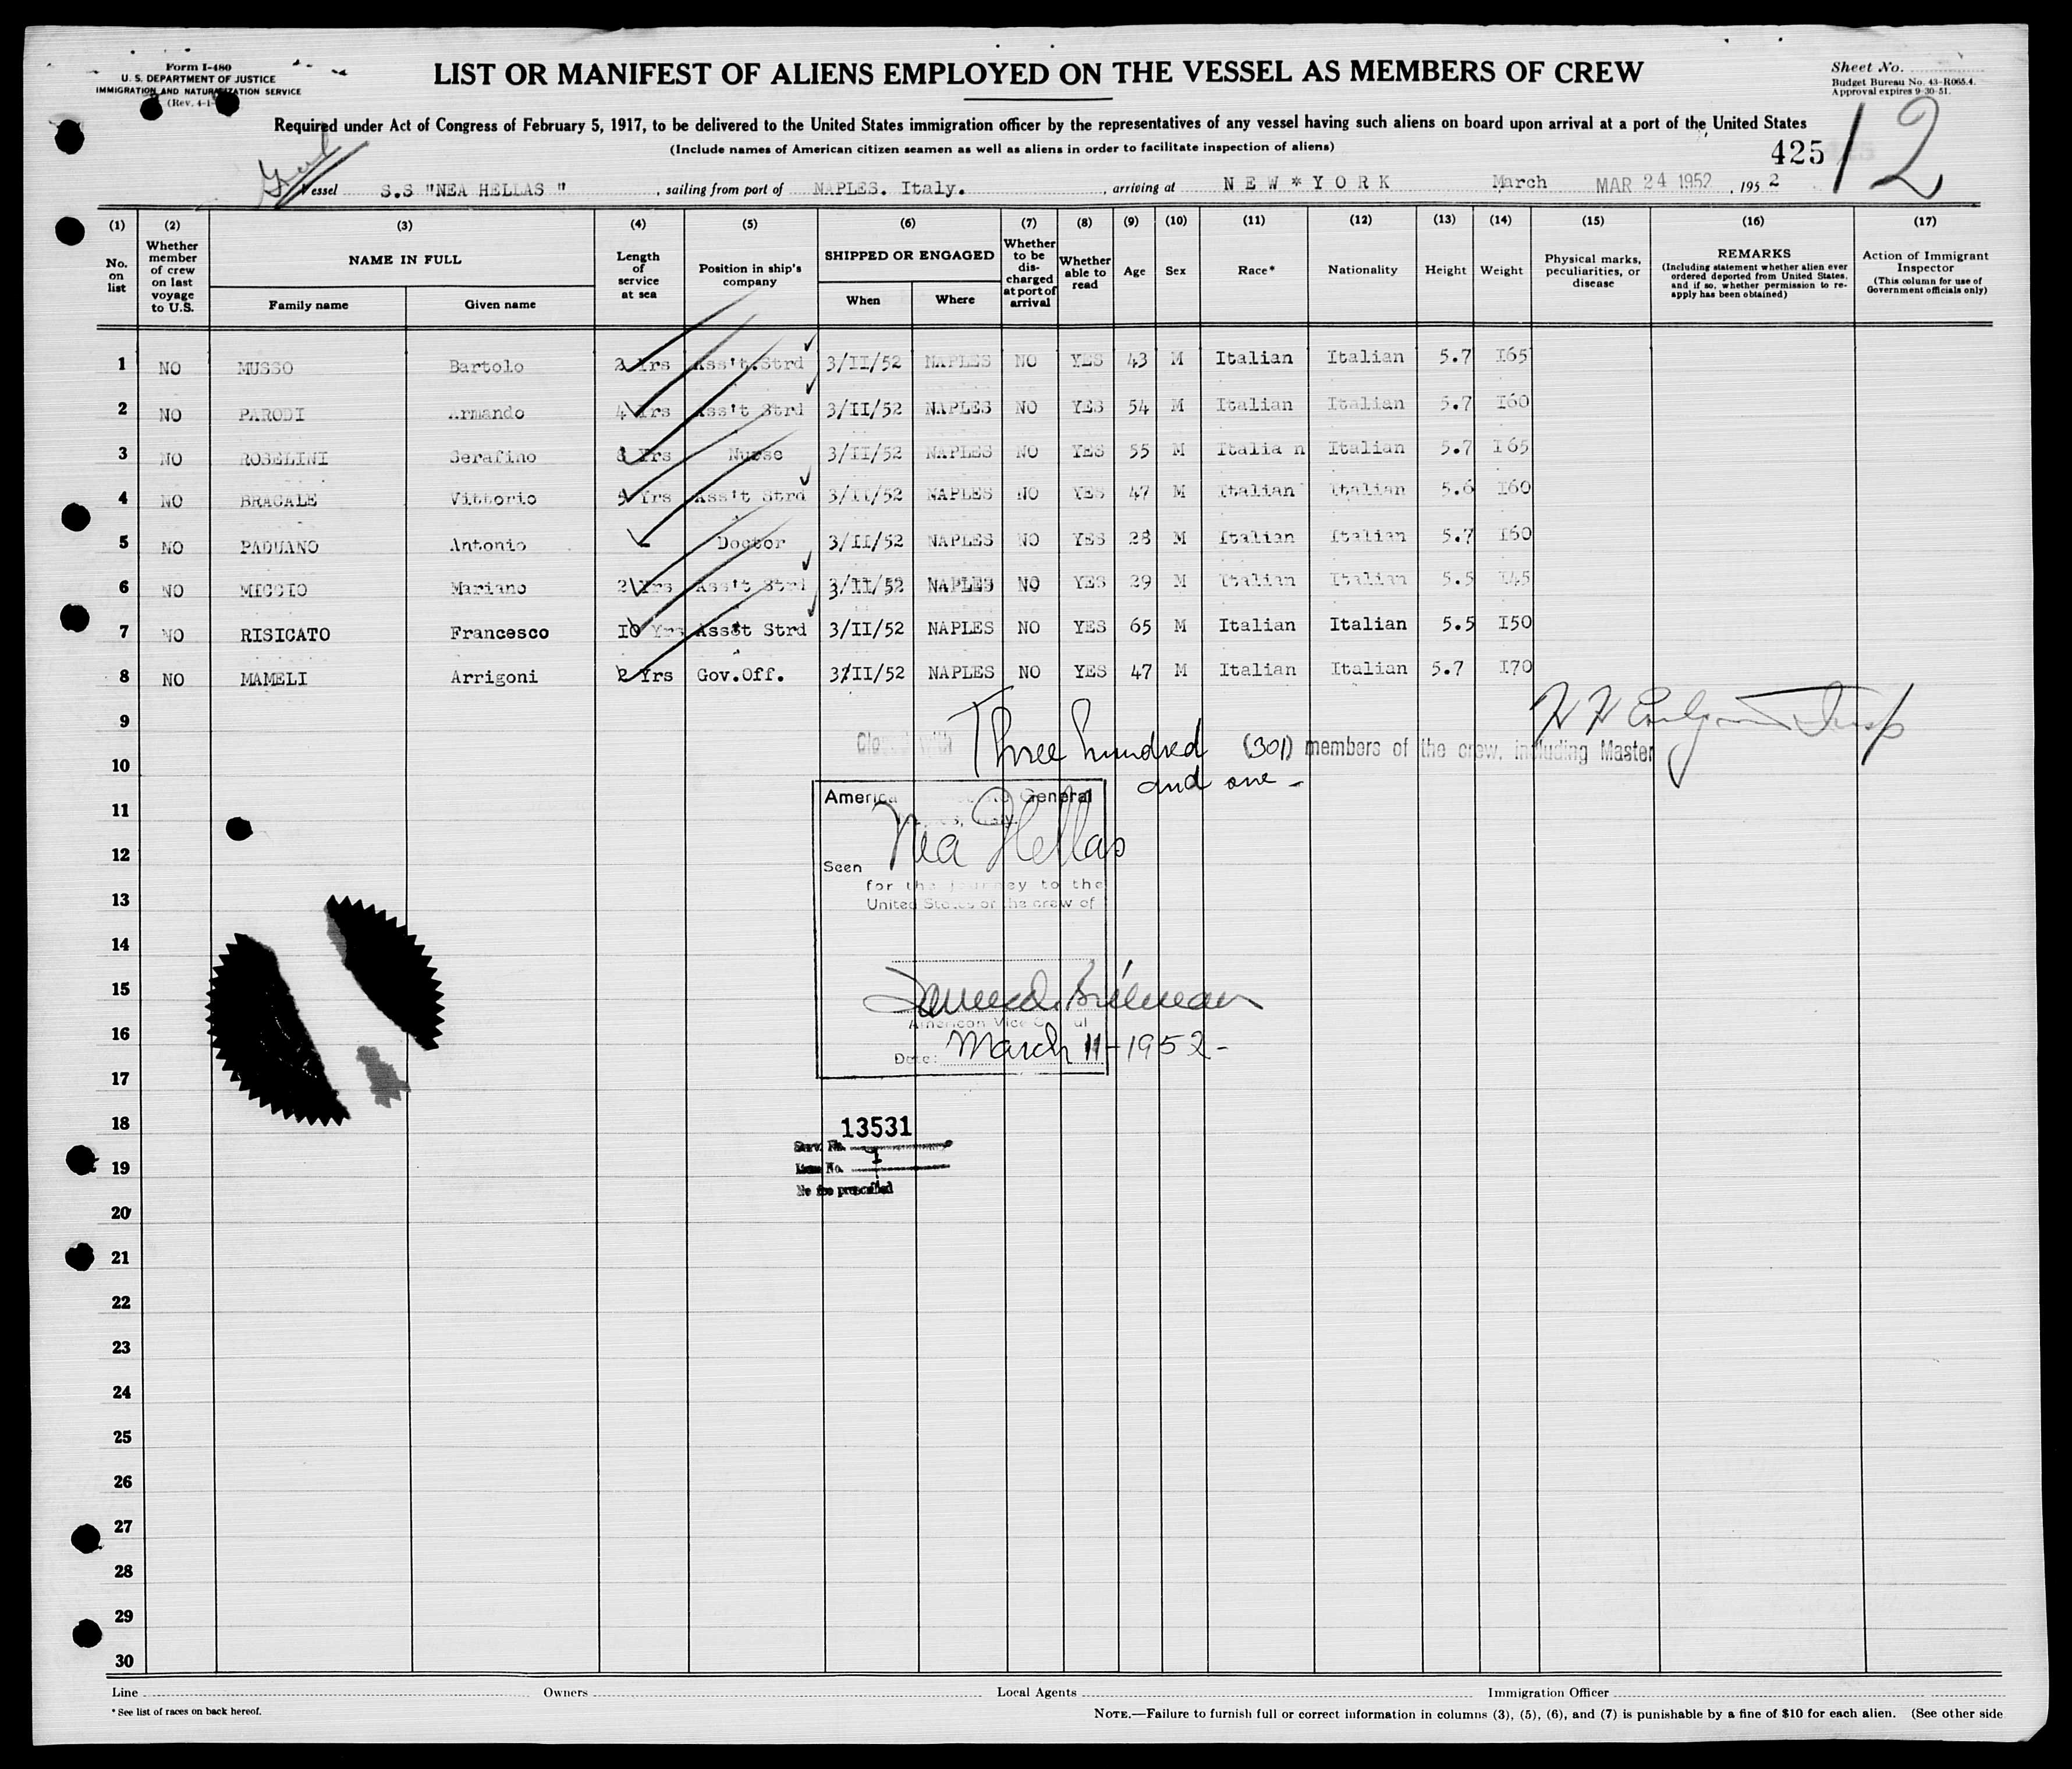 Form I-480
U. S. DEPARTMENT OF JUSTICE
IMMIGRATION AND NATURALIZATION SERVICE
(Rev. 4-1-
LIST OR MANIFEST OF ALIENS EMPLOYED ON THE VESSEL AS MEMBERS OF CREW
Sheet No.
Budget Bureau No. 43-R065.4.
Approval expires 9-30-51.
12
Required under Act of Congress of February 5, 1917, to be delivered to the United States immigration officer by the representatives of any vessel having such aliens on board upon arrival at a port of the United States
(Include names of American citizen seamen as well as aliens in order to facilitate inspection of aliens)
425
Vessel S.S "NEA HELLAS ", sailing from port of NAPLES. Italy., arriving at NEW*YORK March MAR 24 1952, 1952
(1) (2) (3) (4) (5) (6) (7) (8) (9) (10) (11) (12) (13) (14) (15) (16) (17)
No. on list
Whether member of crew on last voyage to U.S.
NAME IN FULL
Family name Given name
Length of service at sea
Position in ship's company
SHIPPED OR ENGAGED
When Where
Whether to be discharged at port of arrival
Whether able to read
Age
Sex
Race*
Nationality
Height
Weight
Physical marks, peculiarities, or disease
REMARKS
(Including statement whether alien ever ordered deported from United States, and if so, whether permission to re-apply has been obtained)
Action of Immigrant Inspector
(This column for use of Government officials only)
1 NO MUSSO Bartolo 2 Yrs Ass't.Strd 3/II/52 NAPLES NO YES 43 M Italian Italian 5.7 I65
2 NO PARODI Armando 4 Yrs Ass't Strd 3/II/52 NAPLES NO YES 54 M Italian Italian 5.7 I60
3 NO ROSELINI Serafino Yrs Nurse 3/II/52 NAPLES NO YES 55 M Italia n Italian 5.7 I65
4 NO BRACALE Vittorio Yrs Ass't Strd 3/II/52 NAPLES NO YES 47 M Italian Italian 5.6 I60
5 NO PADUANO Antonio Doctor 3/II/52 NAPLES NO YES 28 M Italian Italian 5.7 I50
6 NO MICCIO Mariano 2 Yrs Ass't Strd 3/II/52 NAPLES NO YES 29 M Italian Italian 5.5 I45
7 NO RISICATO Francesco IO Yrs Assst Strd 3/II/52 NAPLES NO YES 65 M Italian Italian 5.5 I50
8 NO MAMELI Arrigoni 2 Yrs Gov.Off. 3/II/52 NAPLES NO YES 47 M Italian Italian 5.7 I70
9
Closed with Three hundred (301) members of the crew, including Master
10
and one -
American Consulate General
11
Naples, Italy.
12
Seen Nea Hellas
for the journey to the
13
United States of the crew of
14
15
American Vice Consul
16
Date: March 11-1952-
17
18
13531
Serv. No.
19
Item No. 1
No fee prescribed
20
21
22
23
24
25
26
27
28
29
30
Line Owners Local Agents Immigration Officer
* See list of races on back hereof.
NOTE.—Failure to furnish full or correct information in columns (3), (5), (6), and (7) is punishable by a fine of $10 for each alien. (See other side